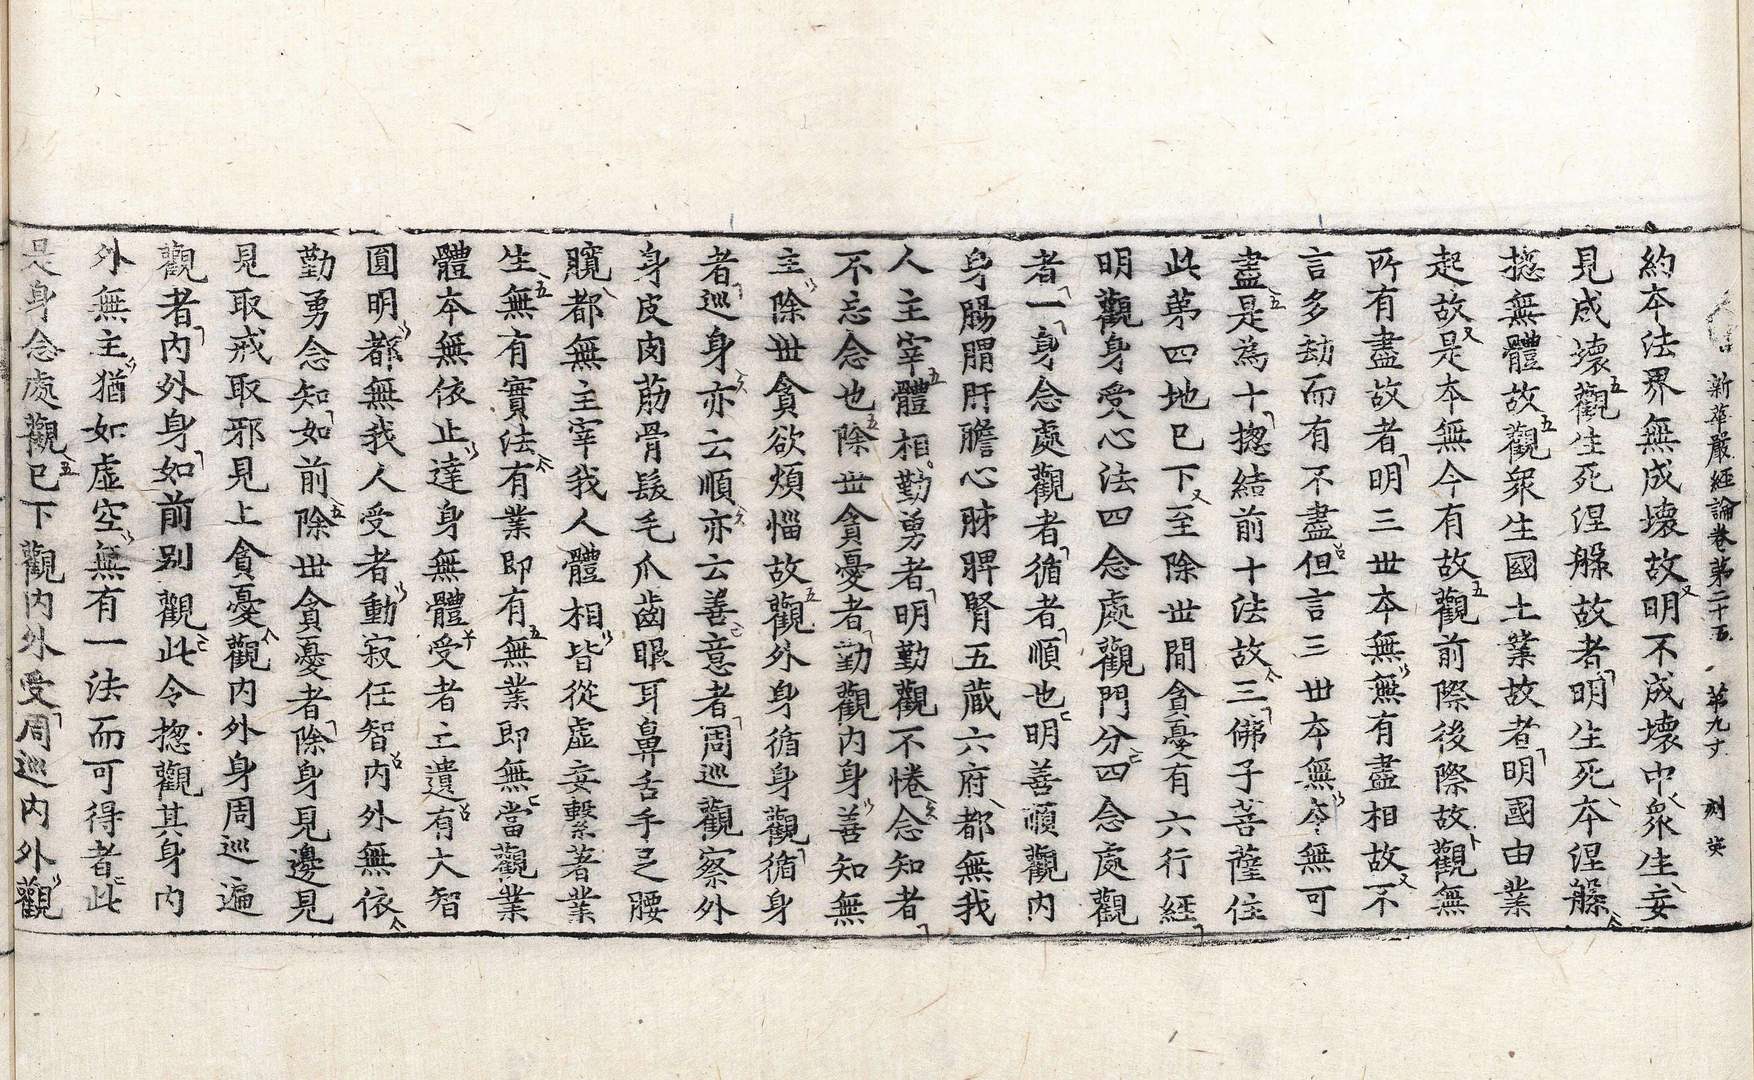 新華嚴經論卷第二十五 第九丈 刻英
約本法界無成壞故明不成壞中衆生妄
見成壞觀生死涅槃故者明生死本涅槃
揔無體故觀衆生國土業故者明國由業
起故是本無今有故觀前際後際故觀無
所有盡故者明三世本無無有盡相故不
言多劫而有不盡但言三世本無今無可
盡是為十揔結前十法故三佛子菩薩住
此第四地已下至除世間貪憂有六行經
明觀身受心法四念處觀門分四念處觀
者一身念處觀者循者順也明善順觀内
身腸胃肝膽心肺脾腎五藏六府都無我
人主宰體相勤勇者明勤觀不惓念知者
不忘念也除世貪憂者勤觀内身善知無
主除世貪欲煩惱故觀外身循身觀循身
者巡身亦云順亦云善意者周巡觀察外
身皮肉筋骨髮毛爪齒眼耳鼻舌手足腰
臗都無主宰我人體相皆從虛妄繫著業
生無有實法有業即有無業即無當觀業
體本無依止達身無體受者亡遺有大智
圓明都無我人受者動寂任智内外無依
勤勇念知如前除世貪憂者除身見邊見
見取戒取邪見上貪憂觀内外身周巡遍
觀者内外身如前别觀此令揔觀其身内
外無主猶如虛空無有一法而可得者此
是身念處觀已下觀内外受周巡内外觀